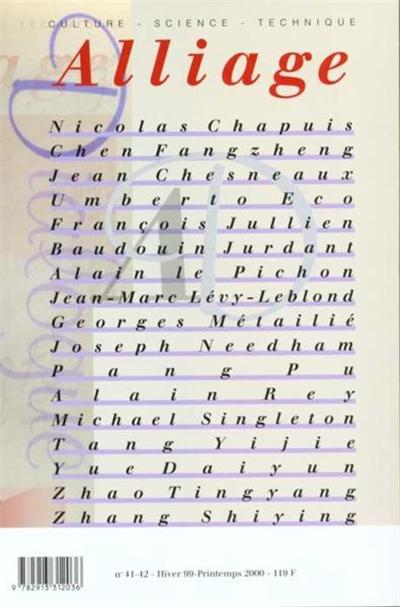 CULTURE - SCIENCE - TECHNIQUE
Alliage
Nicolas Chapuis
Chen Fangzheng
Jean Chesneaux
Umberto Eco
François Jullien
Baudouin Jurdant
Alain le Pichon
Jean-Marc Lévy-Leblond
Georges Métailié
Joseph Needham
Pang Pu
Alain Rey
Michael Singleton
Tang Yijie
Yue Daiyun
Zhao Tingyang
Zhang Shiying
n° 41-42 - Hiver 99-Printemps 2000 - 119 F
9 782915 312036